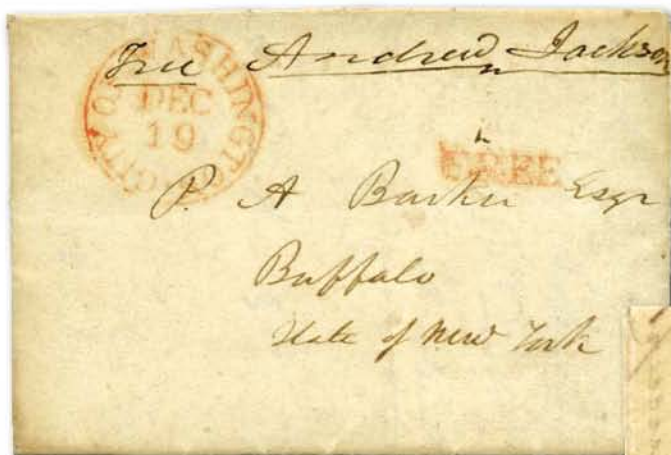 Free Andrew Jackson
CITY OF WASHINGTON
DEC
19
FREE
P. A Barker Esqr
Buffalo
State of New York